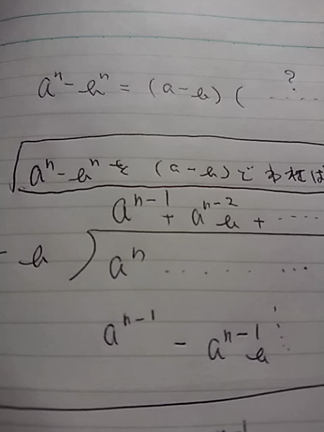 ?
aⁿ - bⁿ = (a - b) ( ....
aⁿ - bⁿ を (a - b) で われば
aⁿ⁻¹ + aⁿ⁻² b + ....
- b ) aⁿ ..... ...
aⁿ⁻¹ - aⁿ⁻¹ b